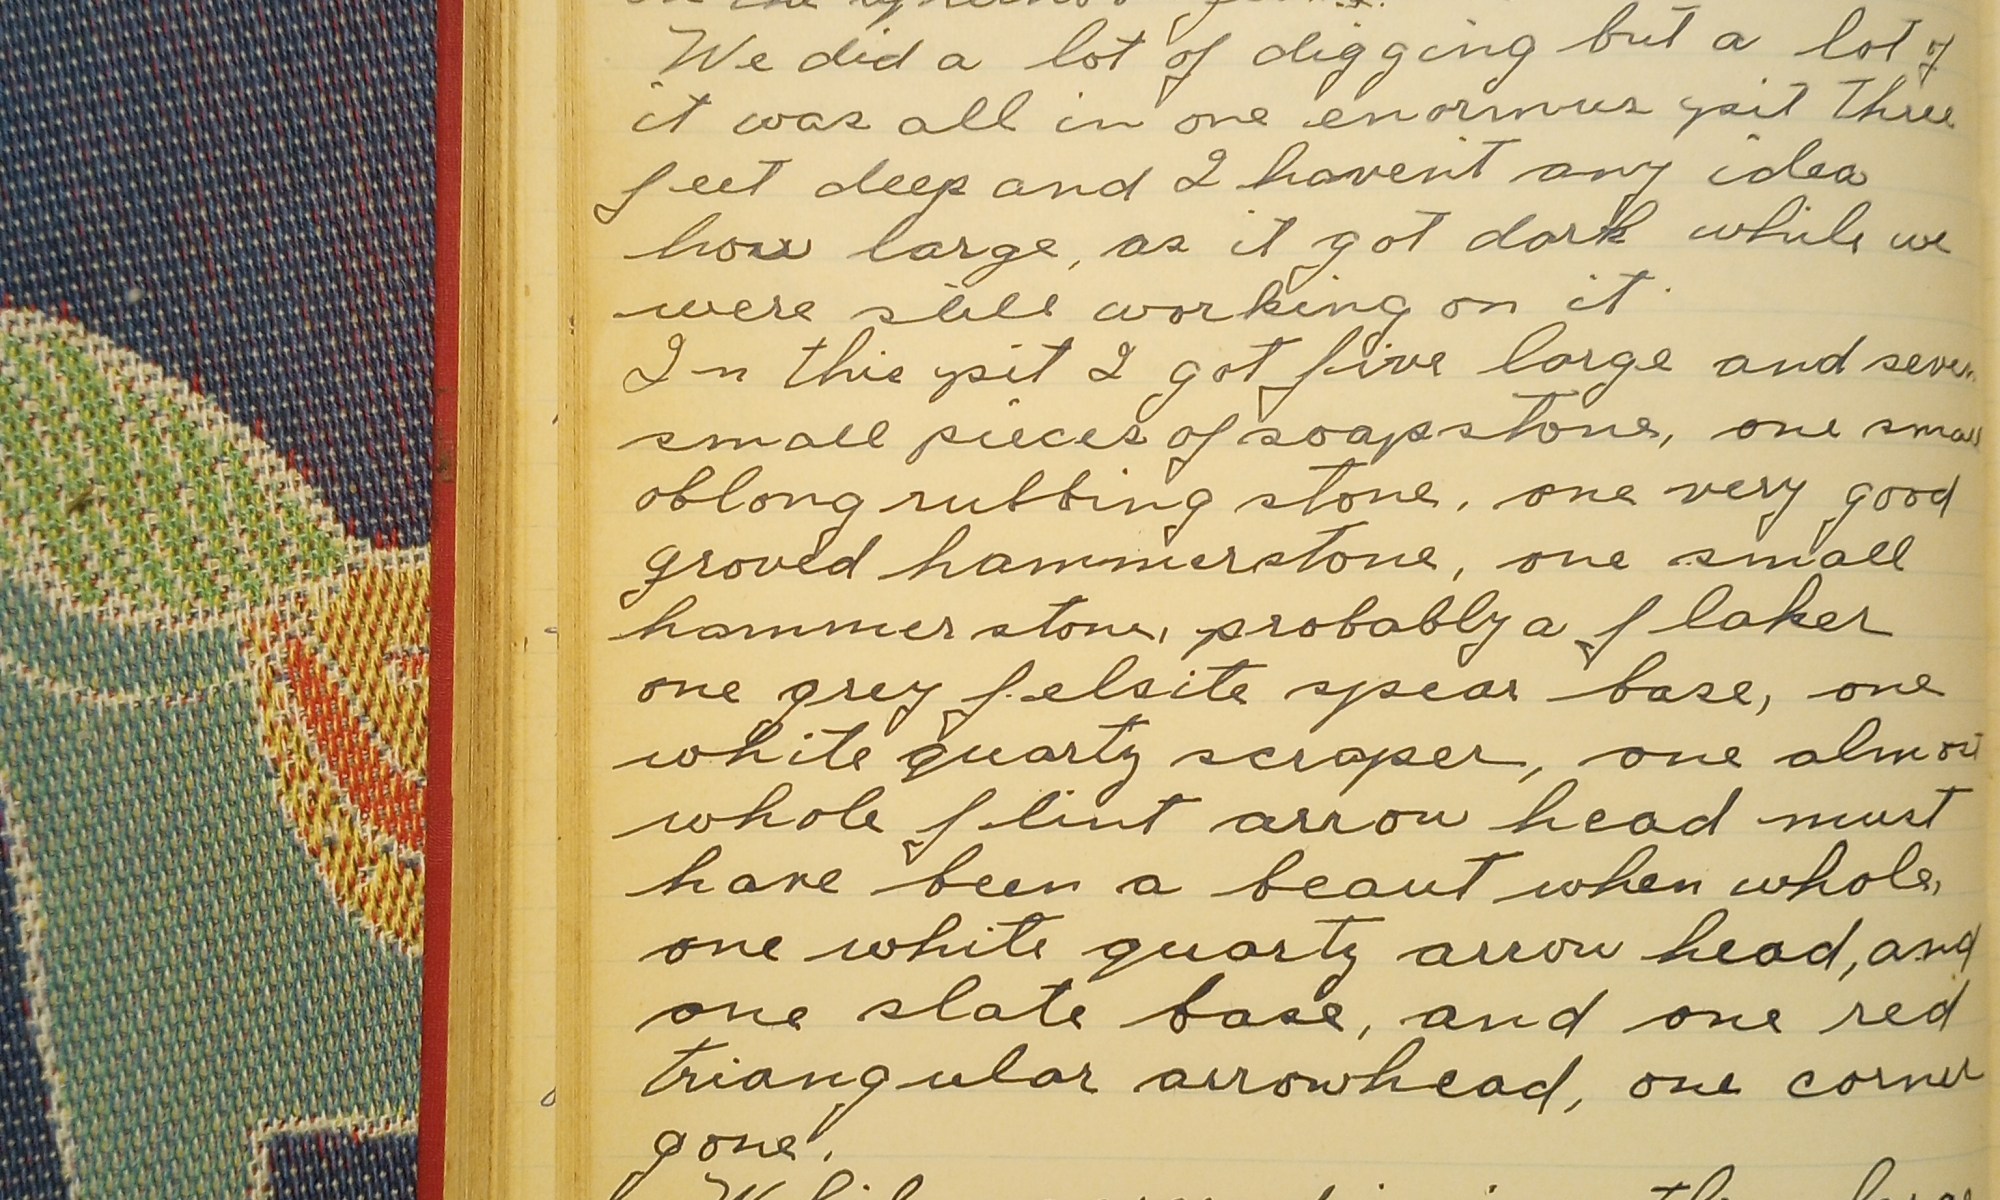 We did a lot of digging but a lot of
it was all in one enormus pit three
feet deep and I havent any idea
how large, as it got dark while we
were still working on it.
In this pit I got five large and seven
small pieces of soapstone, one small
oblong rubbing stone, one very good
groved hammerstone, one small
hammerstone, probably a flaker
one grey felsite spear base, one
white quartz scraper, one almost
whole flint arrow head must
have been a beaut when whole,
one white quartz arrow head, and
one slate base, and one red
triangular arrowhead, one corner
gone.